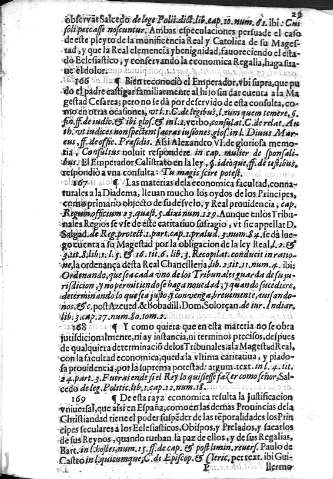 29
observat Salcedo de lege Polit. dict. lib. cap. 10. num. 61. ibi: Cui
soli precasse noscuntur. Ambas especulaciones persuade el caso
de este pleyto de la munificencia Real y Catolica de su Mages-
tad; y que la Real clemencia y benignidad, favoreciendo el esta-
do Eclesiastico, y conservando la economica Regalia, haga sua-
ve el dolor.
166 ¶ Bien reconoció el Emperador, vbi supra, que pu-
do el padre castigar familiarmente al hijo sin dar cuenta a la Ma
gestad Cesarea; pero no se dà por deservido de esta consulta, co-
mo en otras ocasiones, vt l. 1. C. de legibus, l. num quem temere, §.
fin. ff. de iudic. & ibi glos. & in l. 2. verbo, consulat. C. de relat. Au
th. vt iudices non expectent sacras iusiones, glos. in l. Divus Mar-
cus, ff. de offic. Præsidis. Assi Alexandro VI. de gloriosa memo-
ria, Consultus noluit respondere in cap. mulier de sponsali-
bus. El Emperador Calistrato en la ley, §. ideòque, ff. de testibus,
respondiò a vna consulta: Tu magis scire potest.
167 ¶ Las materias de la economica facultad, connа-
turales a la Diadema, llevan mucho los oydos de los Principes,
como primario objecto de su desvelo, y Real providencia, cap.
Regum officium 23. quæst. 5. dixi num. 129. Aunque en los Tribu-
nales Regios se vse de este caritativo sufragio, vt sic appellat D.
Salgad. de Reg. protect. 1. part. cap. 1. prælud. 3. num. 84. se dà lue-
go cuenta a su Magestad por la obligacion de la ley Real, l. 2. &
3. tit. 8. lib. 1. l. 5. & 16. tit. 6. lib. 3. Recopilat. conducit in ratio-
ne, la ordenança desta Real Chancilleria, lib. 2. tit. 11. num. 4. ibi:
Ordenando, que se a cada vno de los Tribunales guarda de su ju-
risdicion, y no permitiendo se haga novedad; y quando sucediere,
determinando lo que sea justo y convenga prevenente, avisando-
nos, &c. post Azeued. & Bobadill. Dom. Solorçan. de iur. Indiar.
lib. 3. cap. 27. num. 80. tom. 2.
168 ¶ Y como quiera que en esta materia no se obra
jurisdicionalmente, ni ay instancia, ni terminos precisos, despues
de qualquiera determinaciō de los Tribunales a la Magestad Real,
con la facultad economica, queda la vltima caritativa, y piado-
sa providencia, por la suprema potestad: argum. text. in l. 4. tit.
24. part. 3. Entrasiende si el Rey lo quisiesse fazer como señor, Sal-
cedo de leg. Politic. lib. 1. cap. 12. num. 18.
169 ¶ De esta rayz economica resulta la Justificacion
vniversal, que assi en España, como en las demas Provincias de la
Christiandad tiene el poder suspēder de las tēporalidades los Prin
cipes seculares a los Eclesiasticos, Obispos, y Prelados, y sacarlos
de sus Reynos, quando turban la paz de ellos, y de sus Regalias,
Bart. in l. hostes, num. 15. ff. de capt. & postlimin. revers. Paulo de
Castro in l. quicumque, C. de Episcop. & Cleric. per text. ibi Gui-
P
llermo